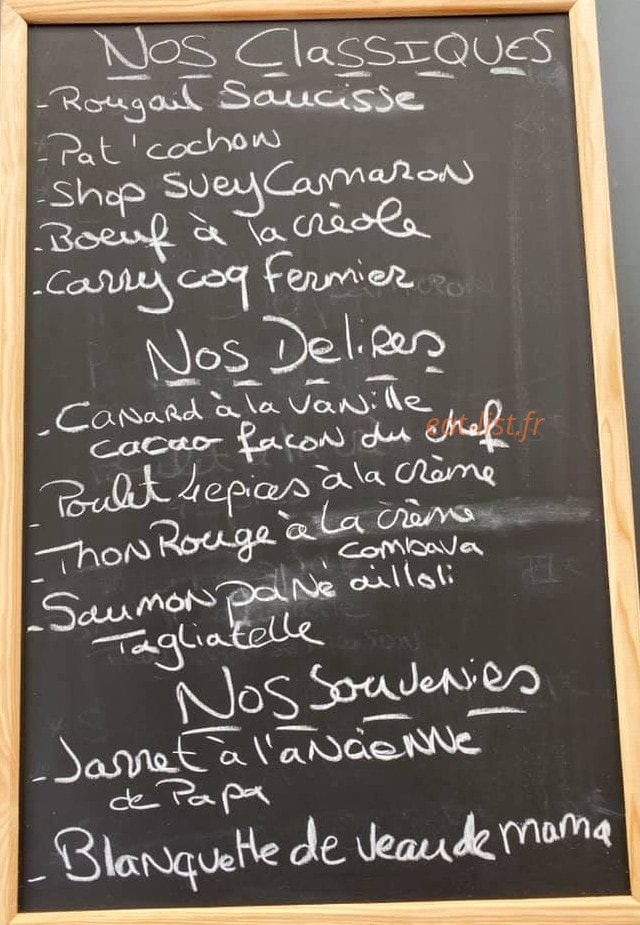 Nos Classiques
- Rougail Saucisse
- Pat'cochon
- Shop Suey Camaron
- Boeuf à la créole
- Carry coq fermier
Nos Delires
- Canard à la vanille
cacao façon du chef
- Poulet 4 epices à la crème
- Thon Rouge à la crème
combava
- Saumon pané ailloli
Tagliatelle
Nos Souvenirs
- Jarret à l'ancienne
de Papa
- Blanquette de veau de mama
eat-list.fr